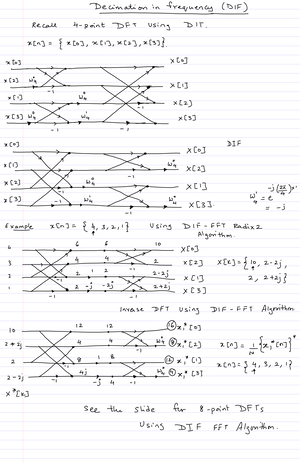 Decimation in frequency (DIF)
Recall 4-point DFT using DIT.
x[n] = { x[0], x[1], x[2], x[3] }
x[0] X[0]
x[2] W₄⁰ -1 X[1]
x[1] -1 X[2]
x[3] W₄⁰ -1 W₄¹ -1 X[3]
DIF
x[0] X[0]
x[1] -1 W₄⁰ X[2]
x[2] -1 W₄⁰ X[1]
x[3] -1 W₄¹ -1 W₄⁰ X[3]
W₄¹ = e^-j(2π/4)×1
= -j
Example x[n] = { 4, 3, 2, 1 } Using DIF-FFT Radix2
Algorithm.
4 6 6 10 X[0]
3 4 4 -1 2 X[2]
2 -1 2 1 2 2-2j X[1]
1 -1 2 -j -2j -1 2+2j X[3]
X[k] = { 10, 2-2j,
2, 2+2j }
Inverse DFT using DIF-FFT Algorithm
10 12 12 16 x₁*[0]
2+2j 4 4 -1 8 x₁*[2]
2 -1 8 1 8 12 x₁*[1]
2-2j -1 4j -j 4 -1 4 x₁*[3]
X*[k]
x[n] = 1/N {x₁*[n]}*
x[n] = { 4, 3, 2, 1 }
See the slide for 8-point DFTs
Using DIF FFT Algorithm.